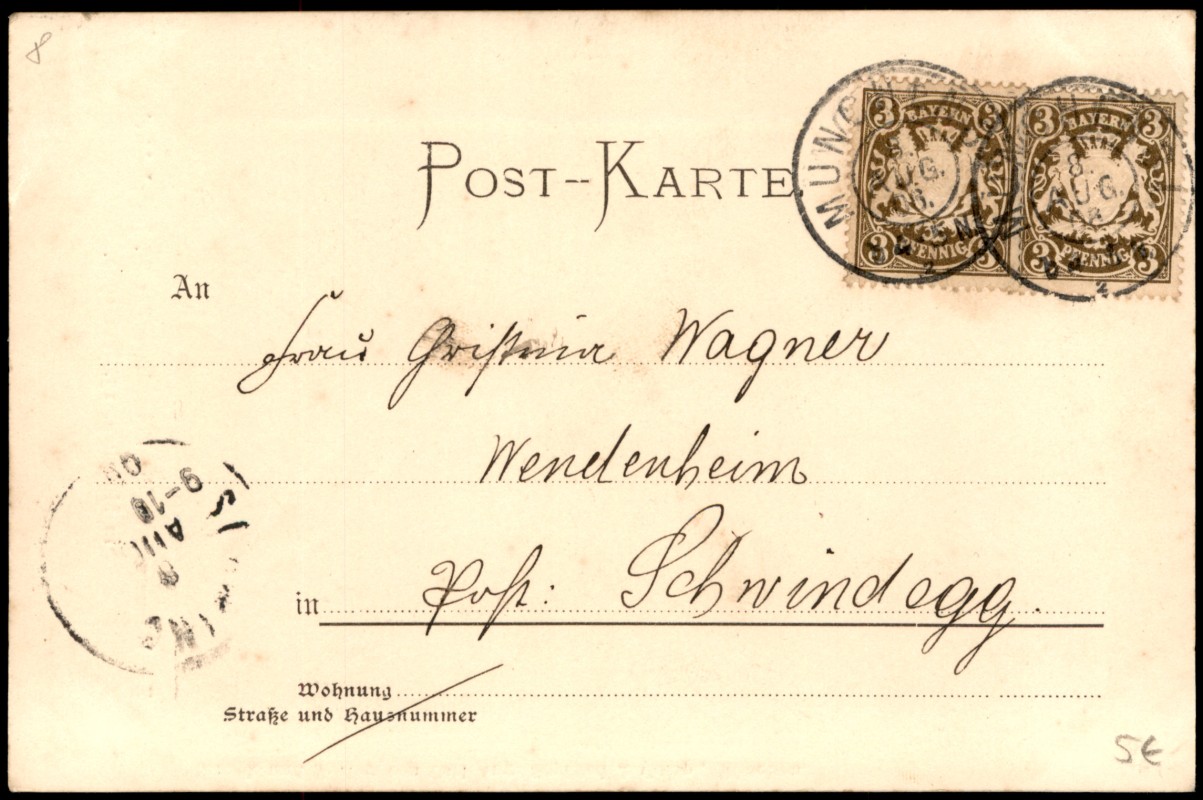 8
POST--KARTE
3 BAYERN 3
3 PFENNIG 3
3 BAYERN 3
3 PFENNIG 3
8. AUG.
8. AUG.
An
Frau Cristina Wagner
Wendenheim
in Post: Schwindegg.
9-10
Wohnung
Straße und Hausnummer
5€